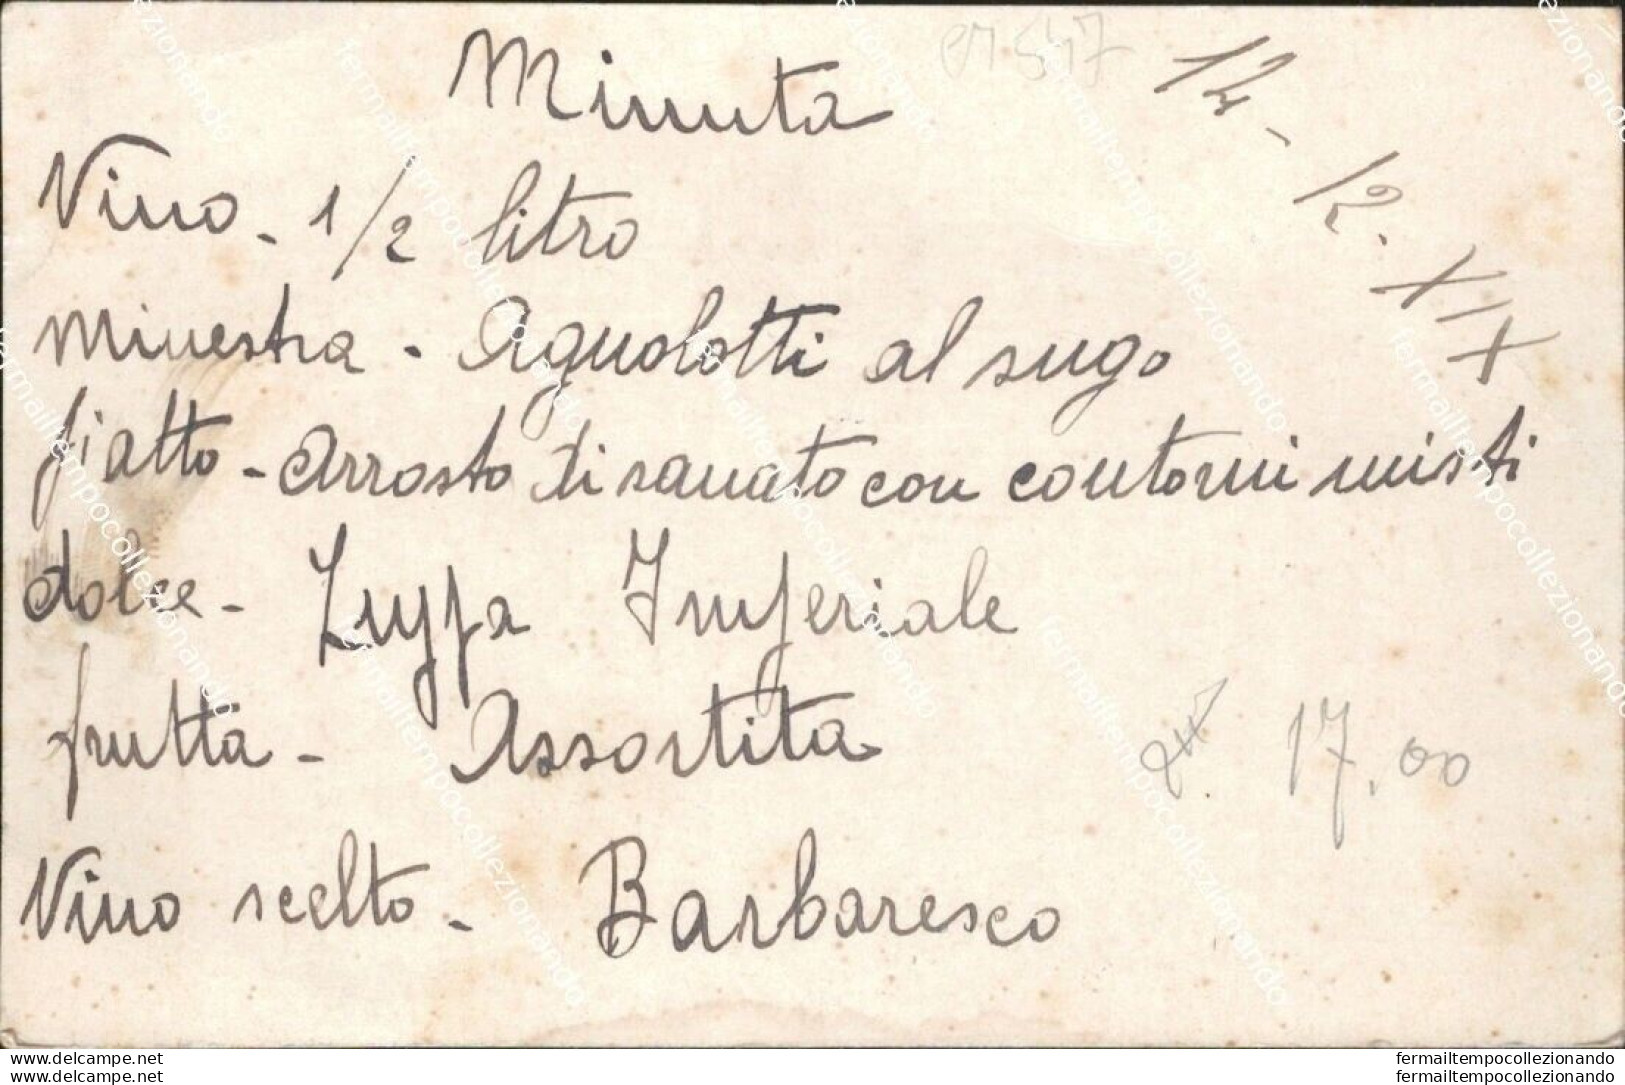 Minuta
12-12-XIX
Vino - 1/2 litro
Minestra - Agnolotti al sugo
piatto - Arrosto di sanato con contorni misti
dolce - Zuppa Imperiale
frutta - Assortita
17,00
Vino scelto - Barbaresco
www.delcampe.net
www.delcampe.net
fermailtempocollezionando
fermailtempocollezionando